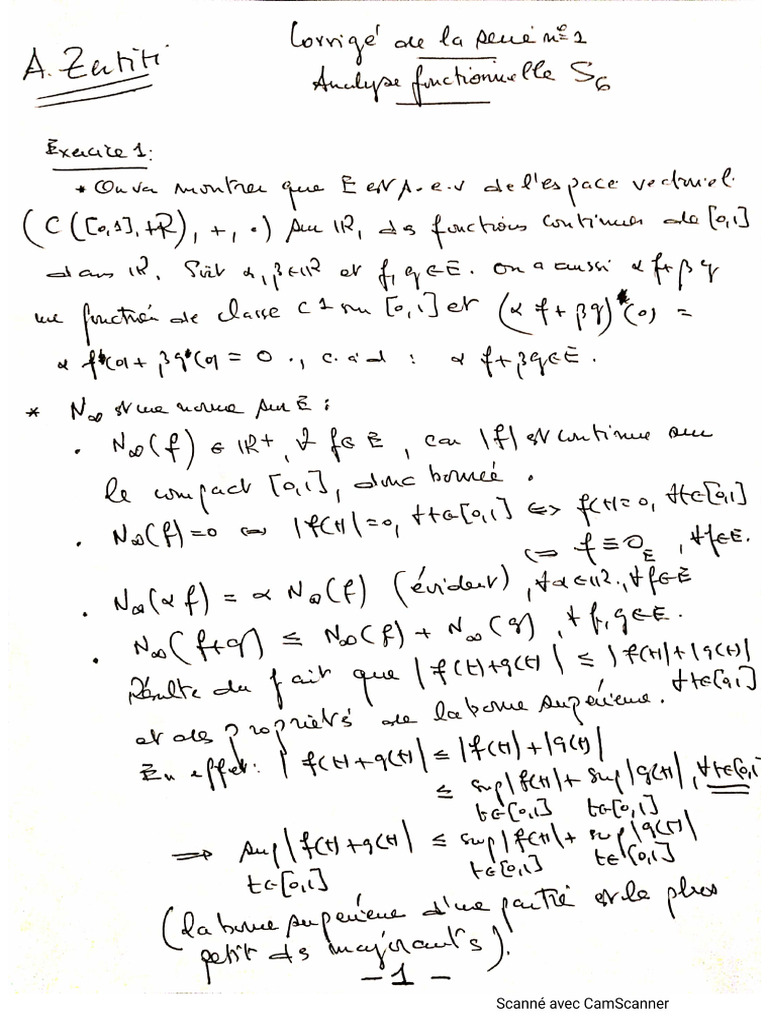 A. Zatiti
Corrigé de la série n°1
Analyse fonctionnelle S6
Exercice 1:
* On va montrer que E est s.e.v de l'espace vectoriel
(C([0,1], IR), +, .) sur IR, des fonctions continues de [0,1]
dans IR. Soit α, β ∈ IR et f, g ∈ E. on a aussi α f + β g
une fonction de classe C1 sur [0,1] et (α f + β g)(0) =
α f(0) + β g(0) = 0 ., c.à.d : α f + β g ∈ E.
* N∞ est une norme sur E :
. N∞(f) ∈ IR+, ∀ f ∈ E, car |f| est continue sur
le compact [0,1], donc bornée.
. N∞(f) = 0 ⇔ |f(t)| = 0, ∀t ∈ [0,1] ⇔ f(t) = 0, ∀t ∈ [0,1]
⇔ f ≡ 0_E, ∀f ∈ E.
. N∞(α f) = α N∞(f) (évident), ∀α ∈ IR., ∀f ∈ E
. N∞(f+g) ≤ N∞(f) + N∞(g), ∀ f, g ∈ E.
Résulte du fait que |f(t)+g(t)| ≤ |f(t)| + |g(t)|
∀t ∈ [0,1]
et des propriétés de la borne supérieure.
En effet: |f(t)+g(t)| ≤ |f(t)| + |g(t)|
≤ sup|f(t)| + sup|g(t)|, ∀t ∈ [0,1]
t∈[0,1] t∈[0,1]
⟹ sup|f(t)+g(t)| ≤ sup|f(t)| + sup|g(t)|
t∈[0,1] t∈[0,1] t∈[0,1]
(la borne supérieure d'une partie est le plus
petit des majorants).
- 1 -
Scanné avec CamScanner